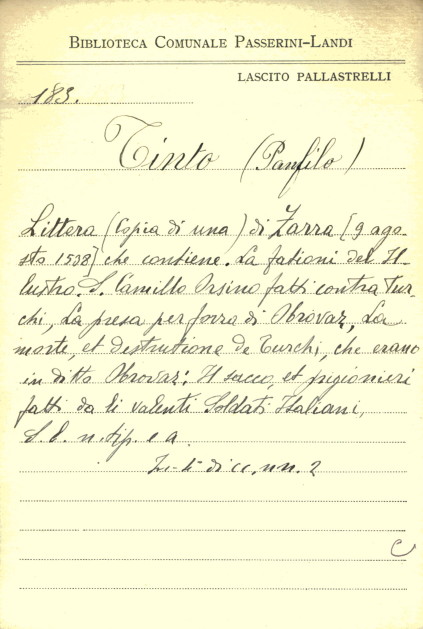 BIBLIOTECA COMUNALE PASSERINI-LANDI
LASCITO PALLASTRELLI
183.
Tinto (Panfilo)
Littera (Copia di una) di Zarra [9 ago-
sto 1538] che contiene. La fationi del Il-
lustro. S. Camillo Orsino fatti contra Tur-
chi, La presa per forza di Obrovaz, La
morte, et destrutione de Turchi, che erano
in ditto Obrovaz: Il sacco, et prigionieri
fatti da li valenti Soldati Italiani,
S. l. n. tip. e a.
di cc. nn. 2
C